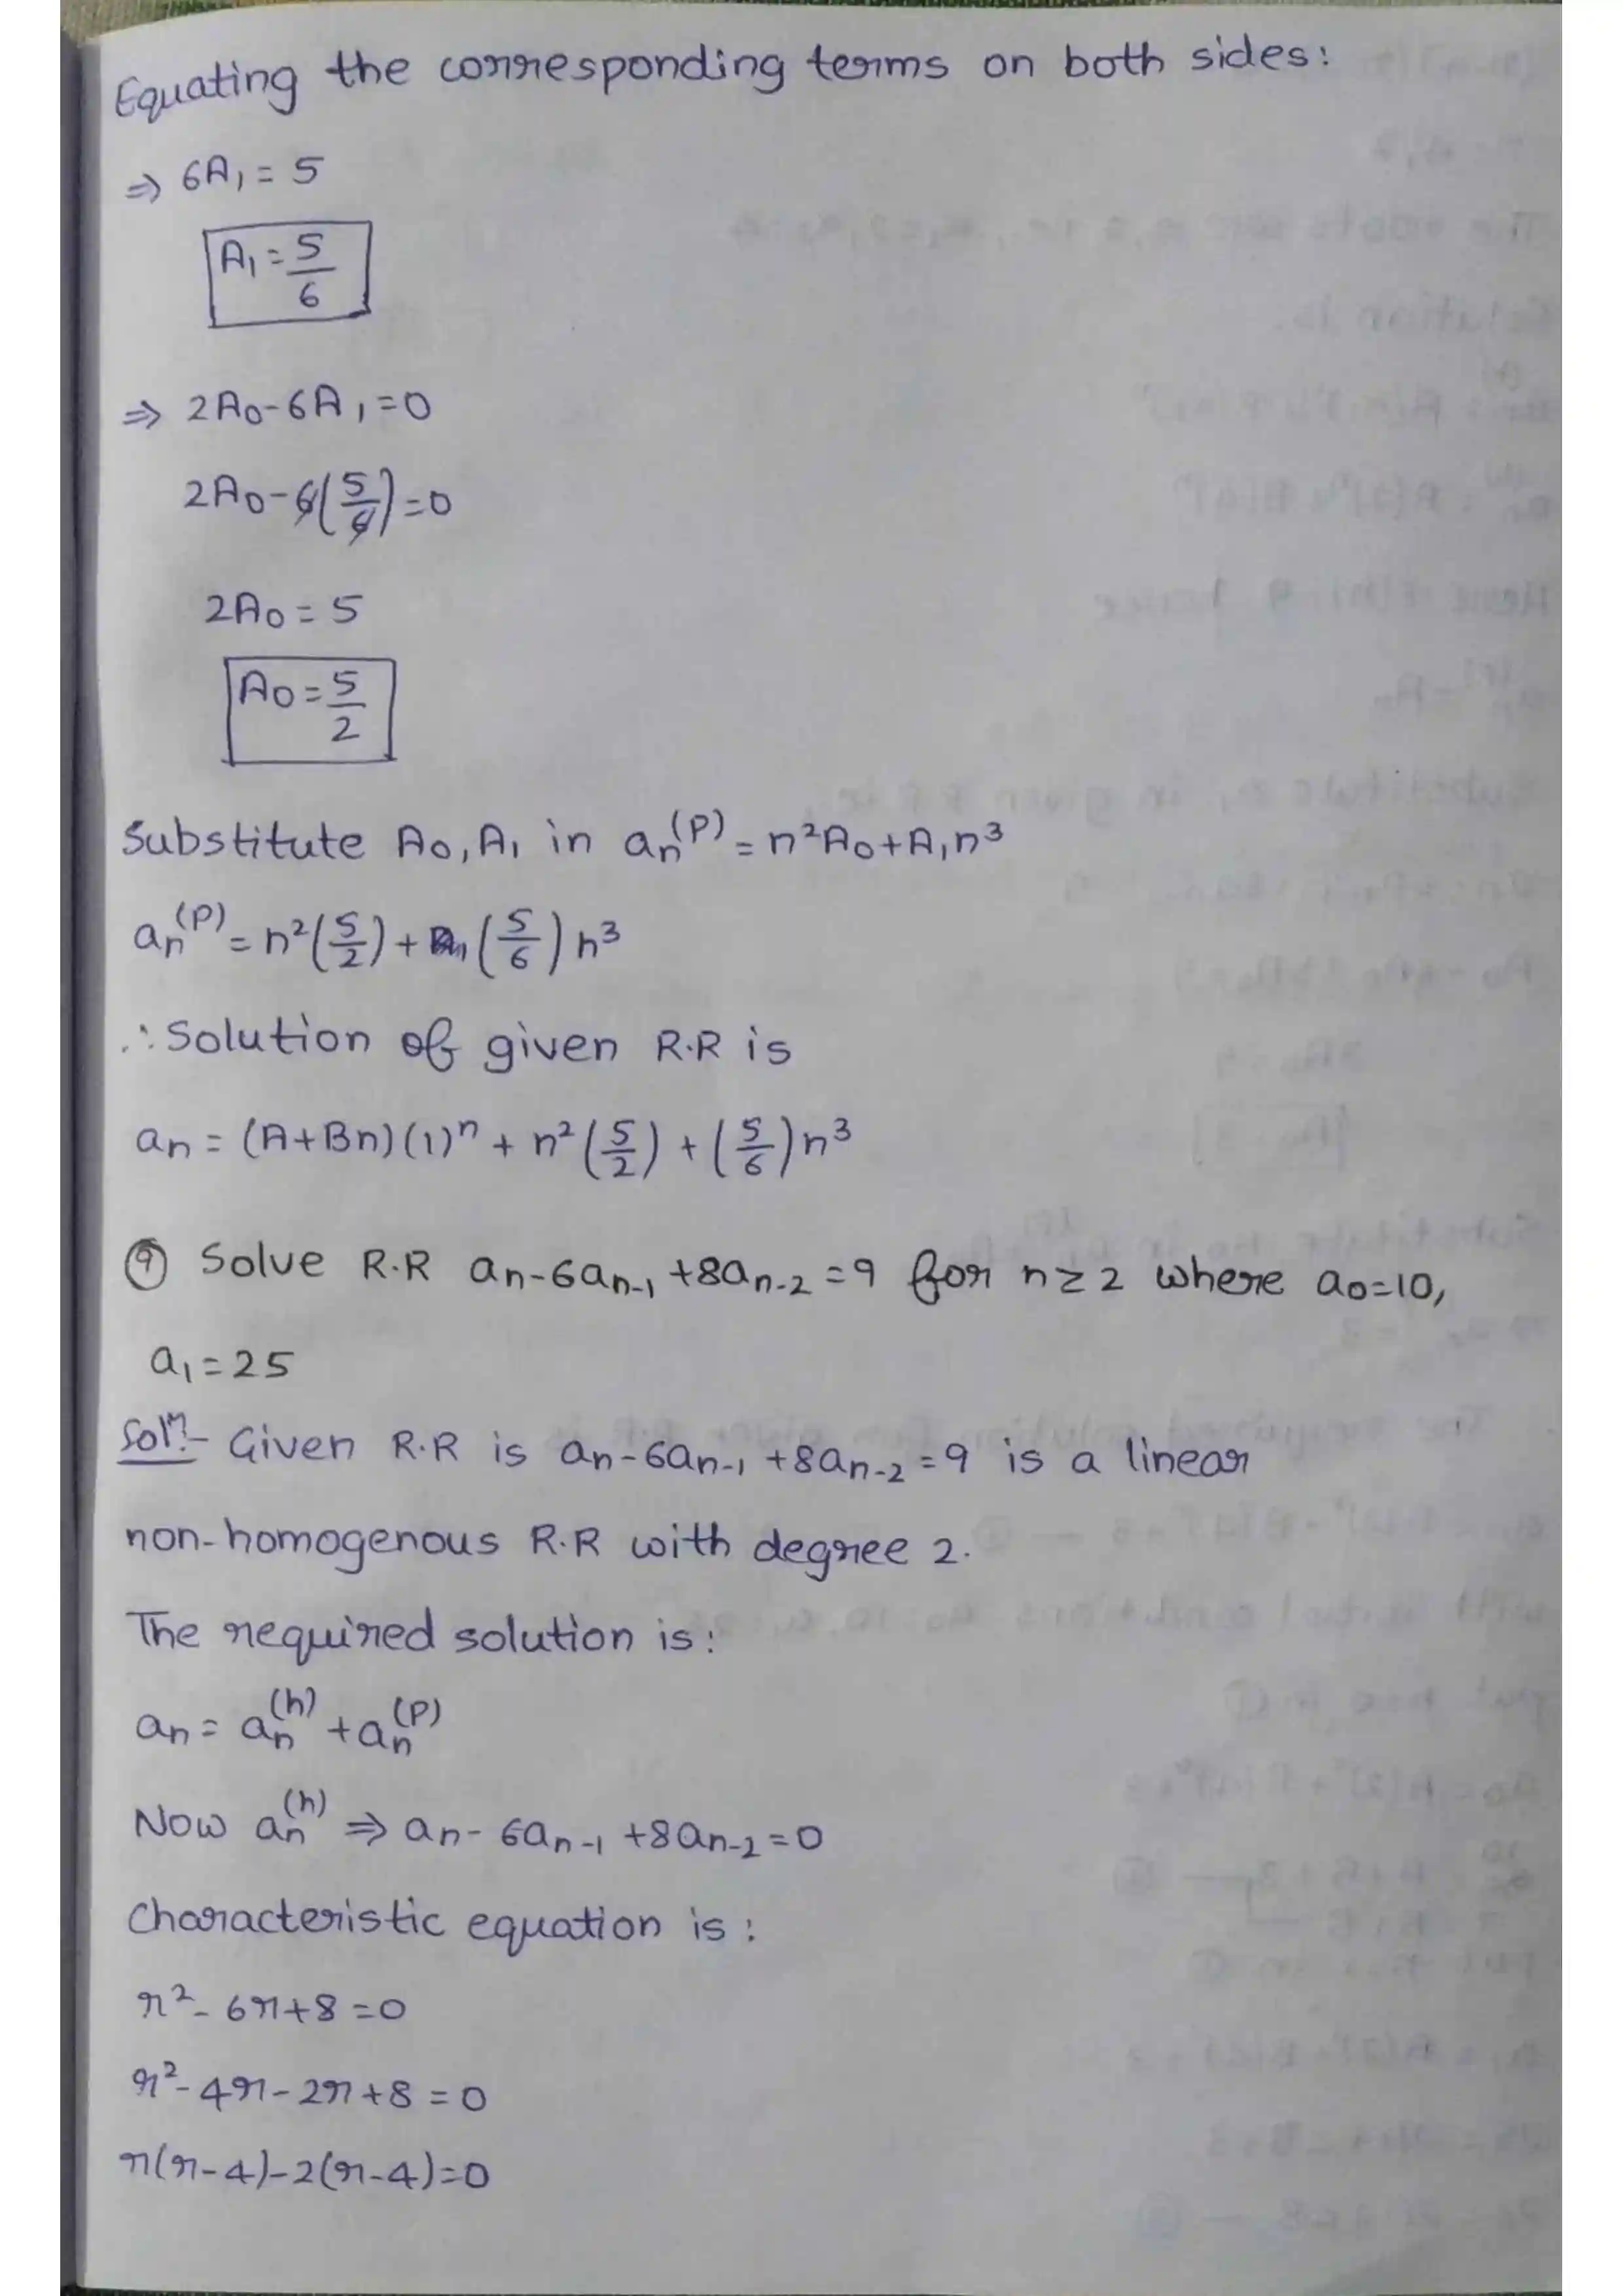 Equating the corresponding terms on both sides:
⇒ 6A₁ = 5
A₁ = 5/6
⇒ 2A₀ - 6A₁ = 0
2A₀ - 6(5/6) = 0
2A₀ = 5
A₀ = 5/2
Substitute A₀, A₁ in aₙ⁽ᴾ⁾ = n²A₀ + A₁n³
aₙ⁽ᴾ⁾ = n²(5/2) + (5/6)n³
∴ Solution of given R.R is
aₙ = (A+Bn)(1)ⁿ + n²(5/2) + (5/6)n³
⑨ Solve R.R aₙ - 6aₙ₋₁ + 8aₙ₋₂ = 9 for n ≥ 2 where a₀ = 10,
a₁ = 25
Solⁿ:- Given R.R is aₙ - 6aₙ₋₁ + 8aₙ₋₂ = 9 is a linear
non-homogenous R.R with degree 2.
The required solution is:
aₙ = aₙ⁽ʰ⁾ + aₙ⁽ᴾ⁾
Now aₙ⁽ʰ⁾ ⇒ aₙ - 6aₙ₋₁ + 8aₙ₋₂ = 0
Characteristic equation is:
r² - 6r + 8 = 0
r² - 4r - 2r + 8 = 0
r(r-4) - 2(r-4) = 0